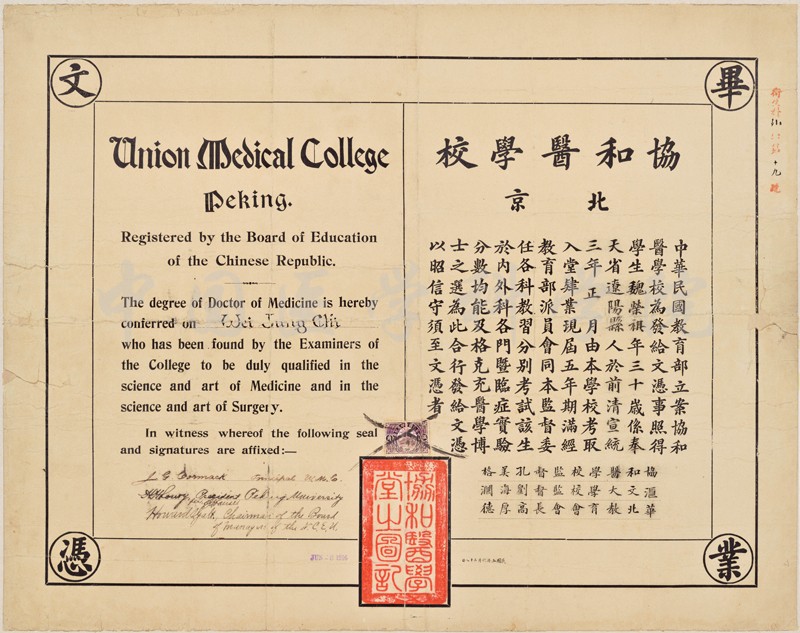 文
畢
Union Medical College
Peking.
Registered by the Board of Education
of the Chinese Republic.
The degree of Doctor of Medicine is hereby
conferred on Wei Jung Chi
who has been found by the Examiners of
the College to be duly qualified in the
science and art of Medicine and in the
science and art of Surgery.
In witness whereof the following seal
and signatures are affixed:—
Principal
President Peking University
Howard Chairman of the Board
of managers of the
校學醫和協
京北
中華民國教育部立案協和
醫學校為發給文憑事照得
學生魏榮祺年三十歲係奉
天省遼陽縣人於前清宣統
三年正月由本學校考取
入堂肄業現屆五年期滿經
教育部派員會同本監督委
任各科教習分別考試該生
於內外科各門暨臨症實驗
分數均能及格克充醫學博
士之選為此合行發給文憑
以昭信守須至文憑者
協和醫學校監督孔
滙文大學校監督劉海
華北教育會會長高厚德
協和醫學
堂之圖記
JUN
憑
業